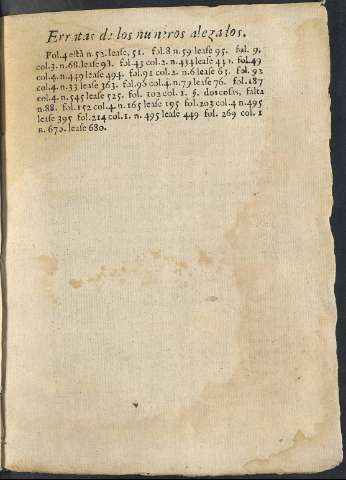 Erratas de los numeros alegados.
Fol. 4 està n. 52. lease, 51. fol. 8 n. 59 lease 95. fol. 9.
col. 3. n. 68. lease 98. fol. 43 col. 2. n. 434 lease 431. fol. 49
col. 4. n. 449 lease 494. fol. 91 col. 2. n. 6 lease 65. fol. 92
col. 4. n. 33 lease 363. fol. 96 col. 4. n. 79 lease 76. fol. 187
col. 4. n. 545 lease 525. fol. 102 col. 1. §. dos cosas, falta
n. 88. fol. 152 col. 4. n. 165 lease 195 fol. 203 col 4 n. 495
lease 395 fol. 214 col. 1. n. 495 lease 449 fol. 269 col. 1
n. 670. lease 680.